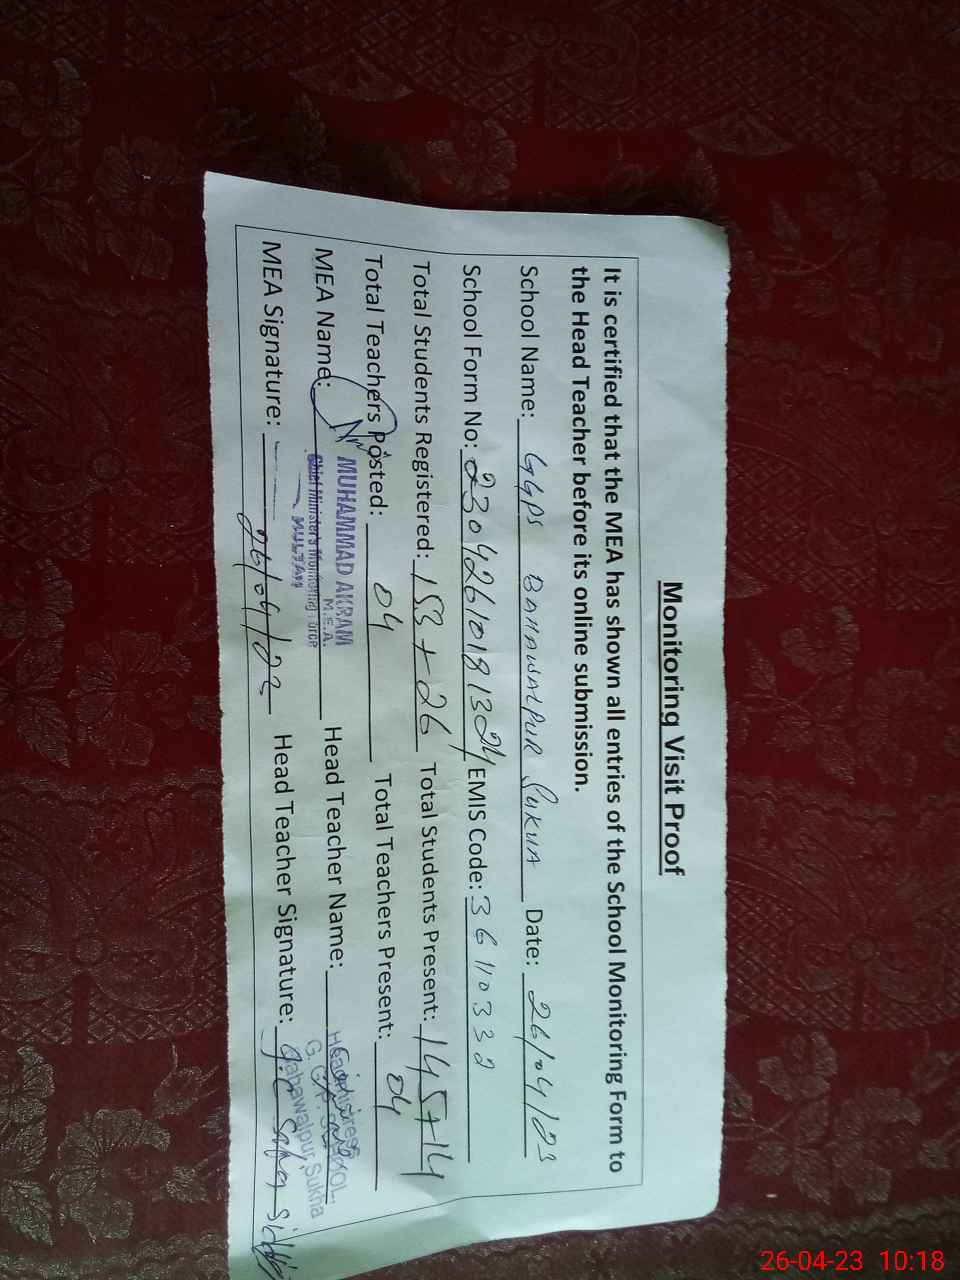 Monitoring Visit Proof
It is certified that the MEA has shown all entries of the School Monitoring Form to
the Head Teacher before its online submission.
School Name: GGPS BAHAWALPUR SUKHA Date: 26/04/23
School Form No: EMIS Code: 36110332
Total Students Registered: 153+26 Total Students Present: 145+14
Total Teachers Posted: 04 Total Teachers Present: 04
MEA Name: MUHAMMAD AKRAM Head Teacher Name:
M.E.A. Headmistress
Chief Minister's Monitoring Force G.G.P. SCHOOL,
MULTAN Bahawalpur Sukha
MEA Signature: Head Teacher Signature:
26/04/23
26-04-23 10:18